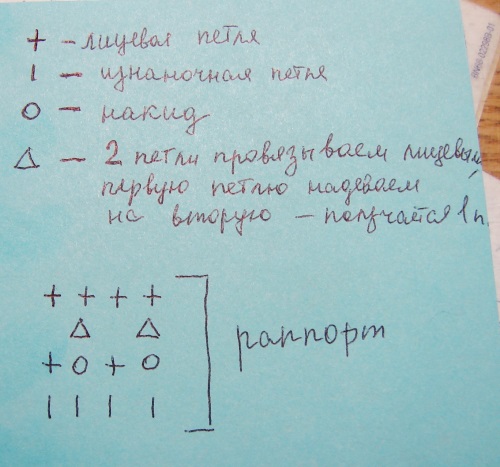 + – лицевая петля
| – изнаночная петля
O – накид
△ – 2 петли провязываем лицевым,
первую петлю надеваем
на вторую – получается 1п.
+ + + +
△ △
+ O + O
| | | |
раппорт